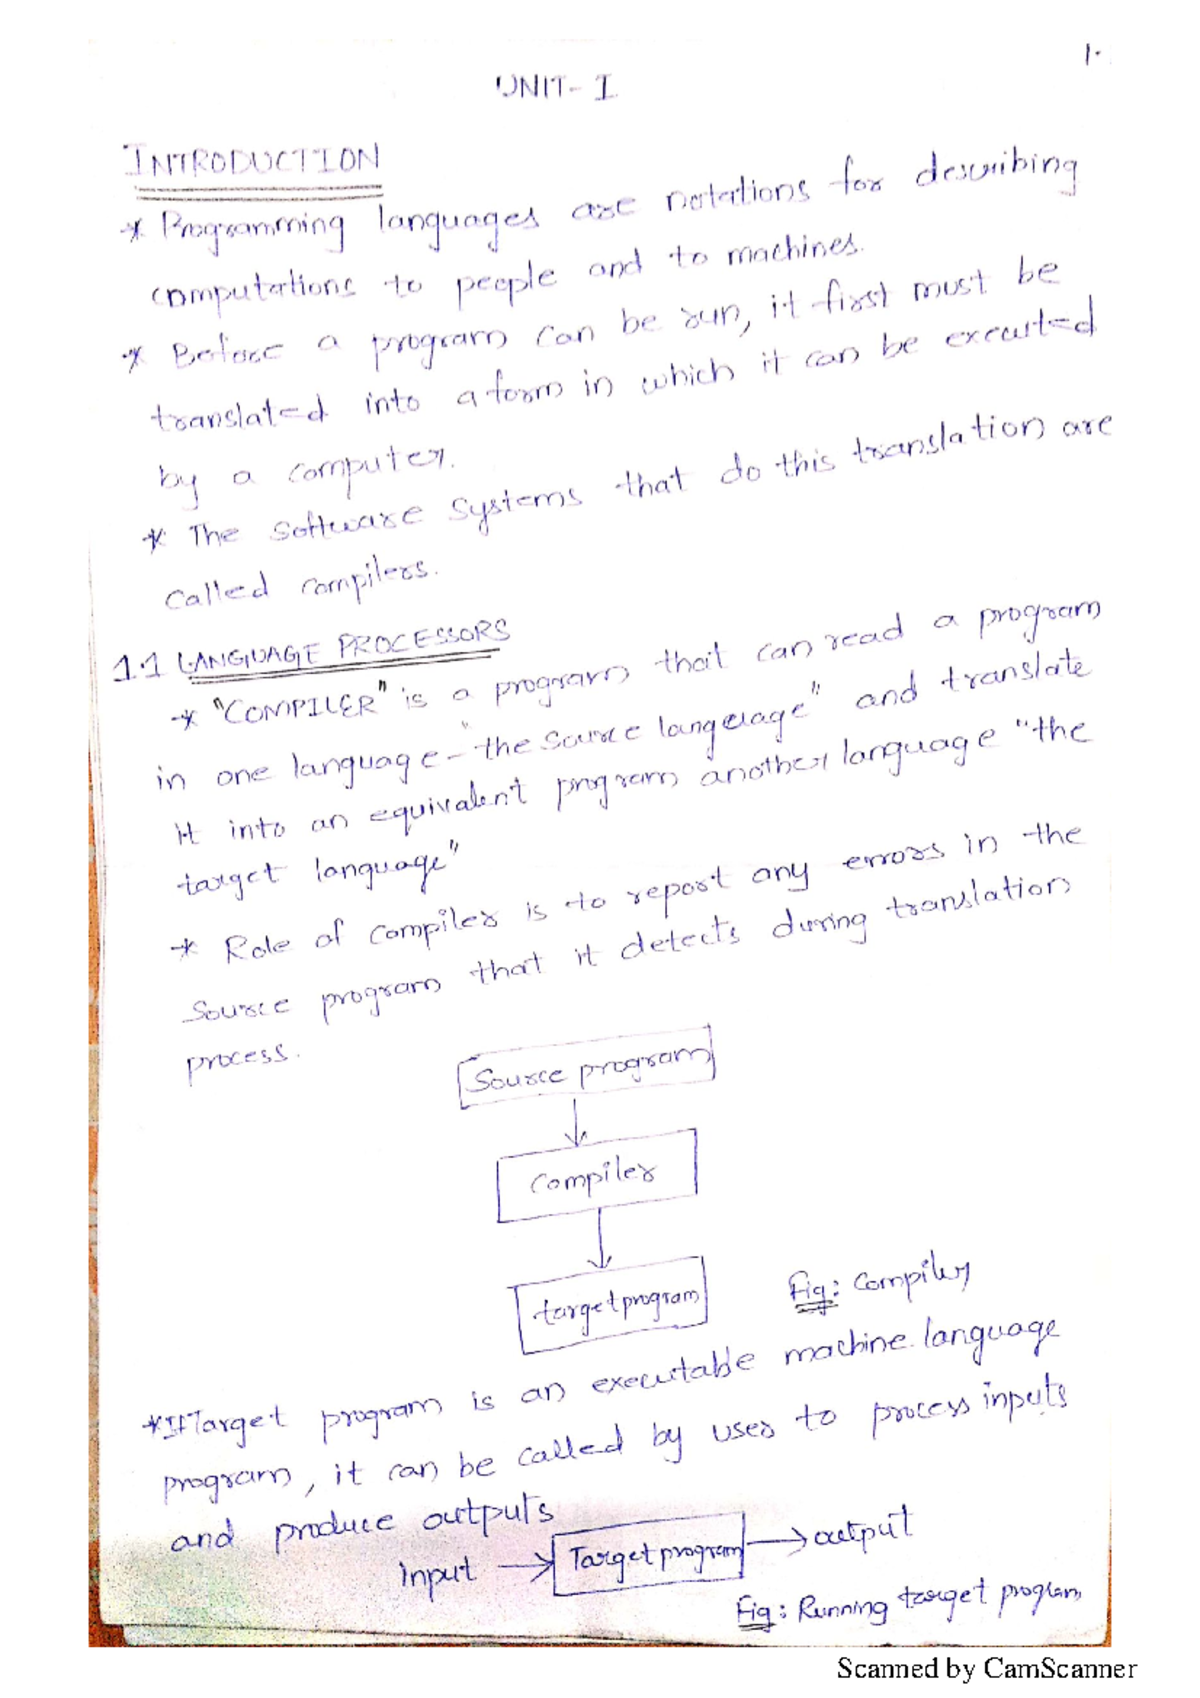 1.
UNIT- I
INTRODUCTION
* Programming languages are notations for describing
computations to people and to machines.
* Before a program can be run, it first must be
translated into a form in which it can be executed
by a computer.
* The software systems that do this translation are
called compilers.
1.1 LANGUAGE PROCESSORS
* "COMPILER" is a program that can read a program
in one language - "the source language" and translate
it into an equivalent program another language "the
target language"
* Role of compiler is to report any errors in the
source program that it detects during translation
process.
Source program
Compiler
target program
Fig: Compiler
* If Target program is an executable machine language
program, it can be called by user to process inputs
and produce outputs
Input → Target program → output
Fig: Running target program
Scanned by CamScanner